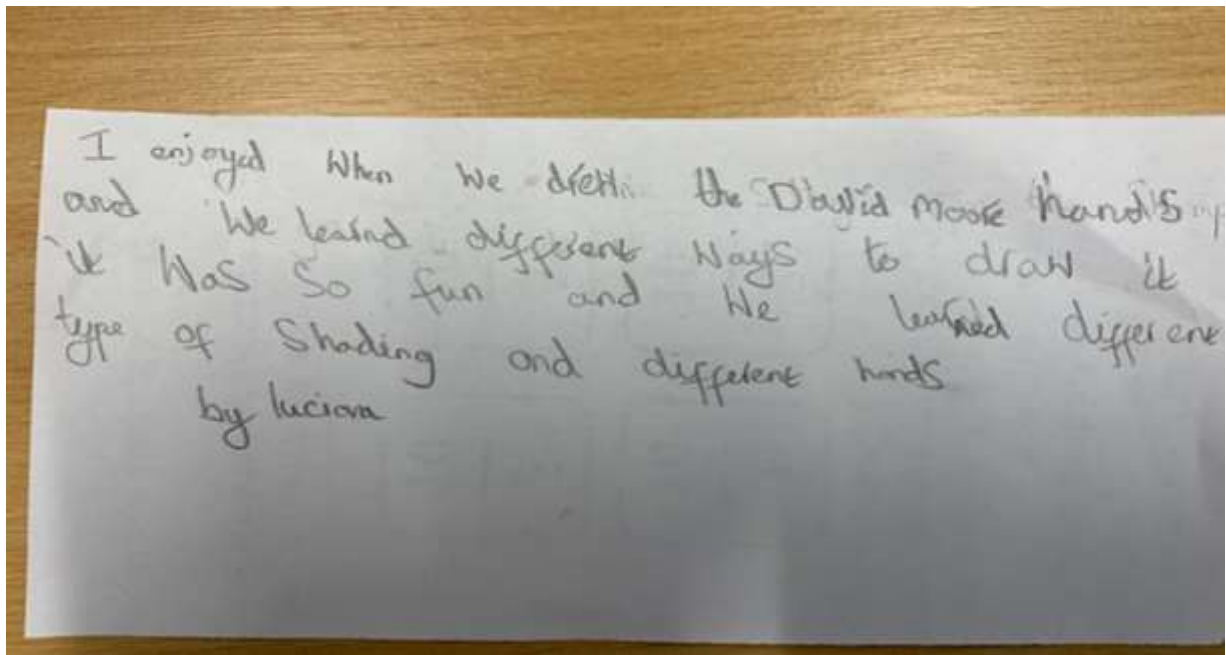 I enjoyed When We drew the David moore hand's
and We learnd different Ways to draw it
it Was So fun and We learned different
type of Shading and different hands
by luciana